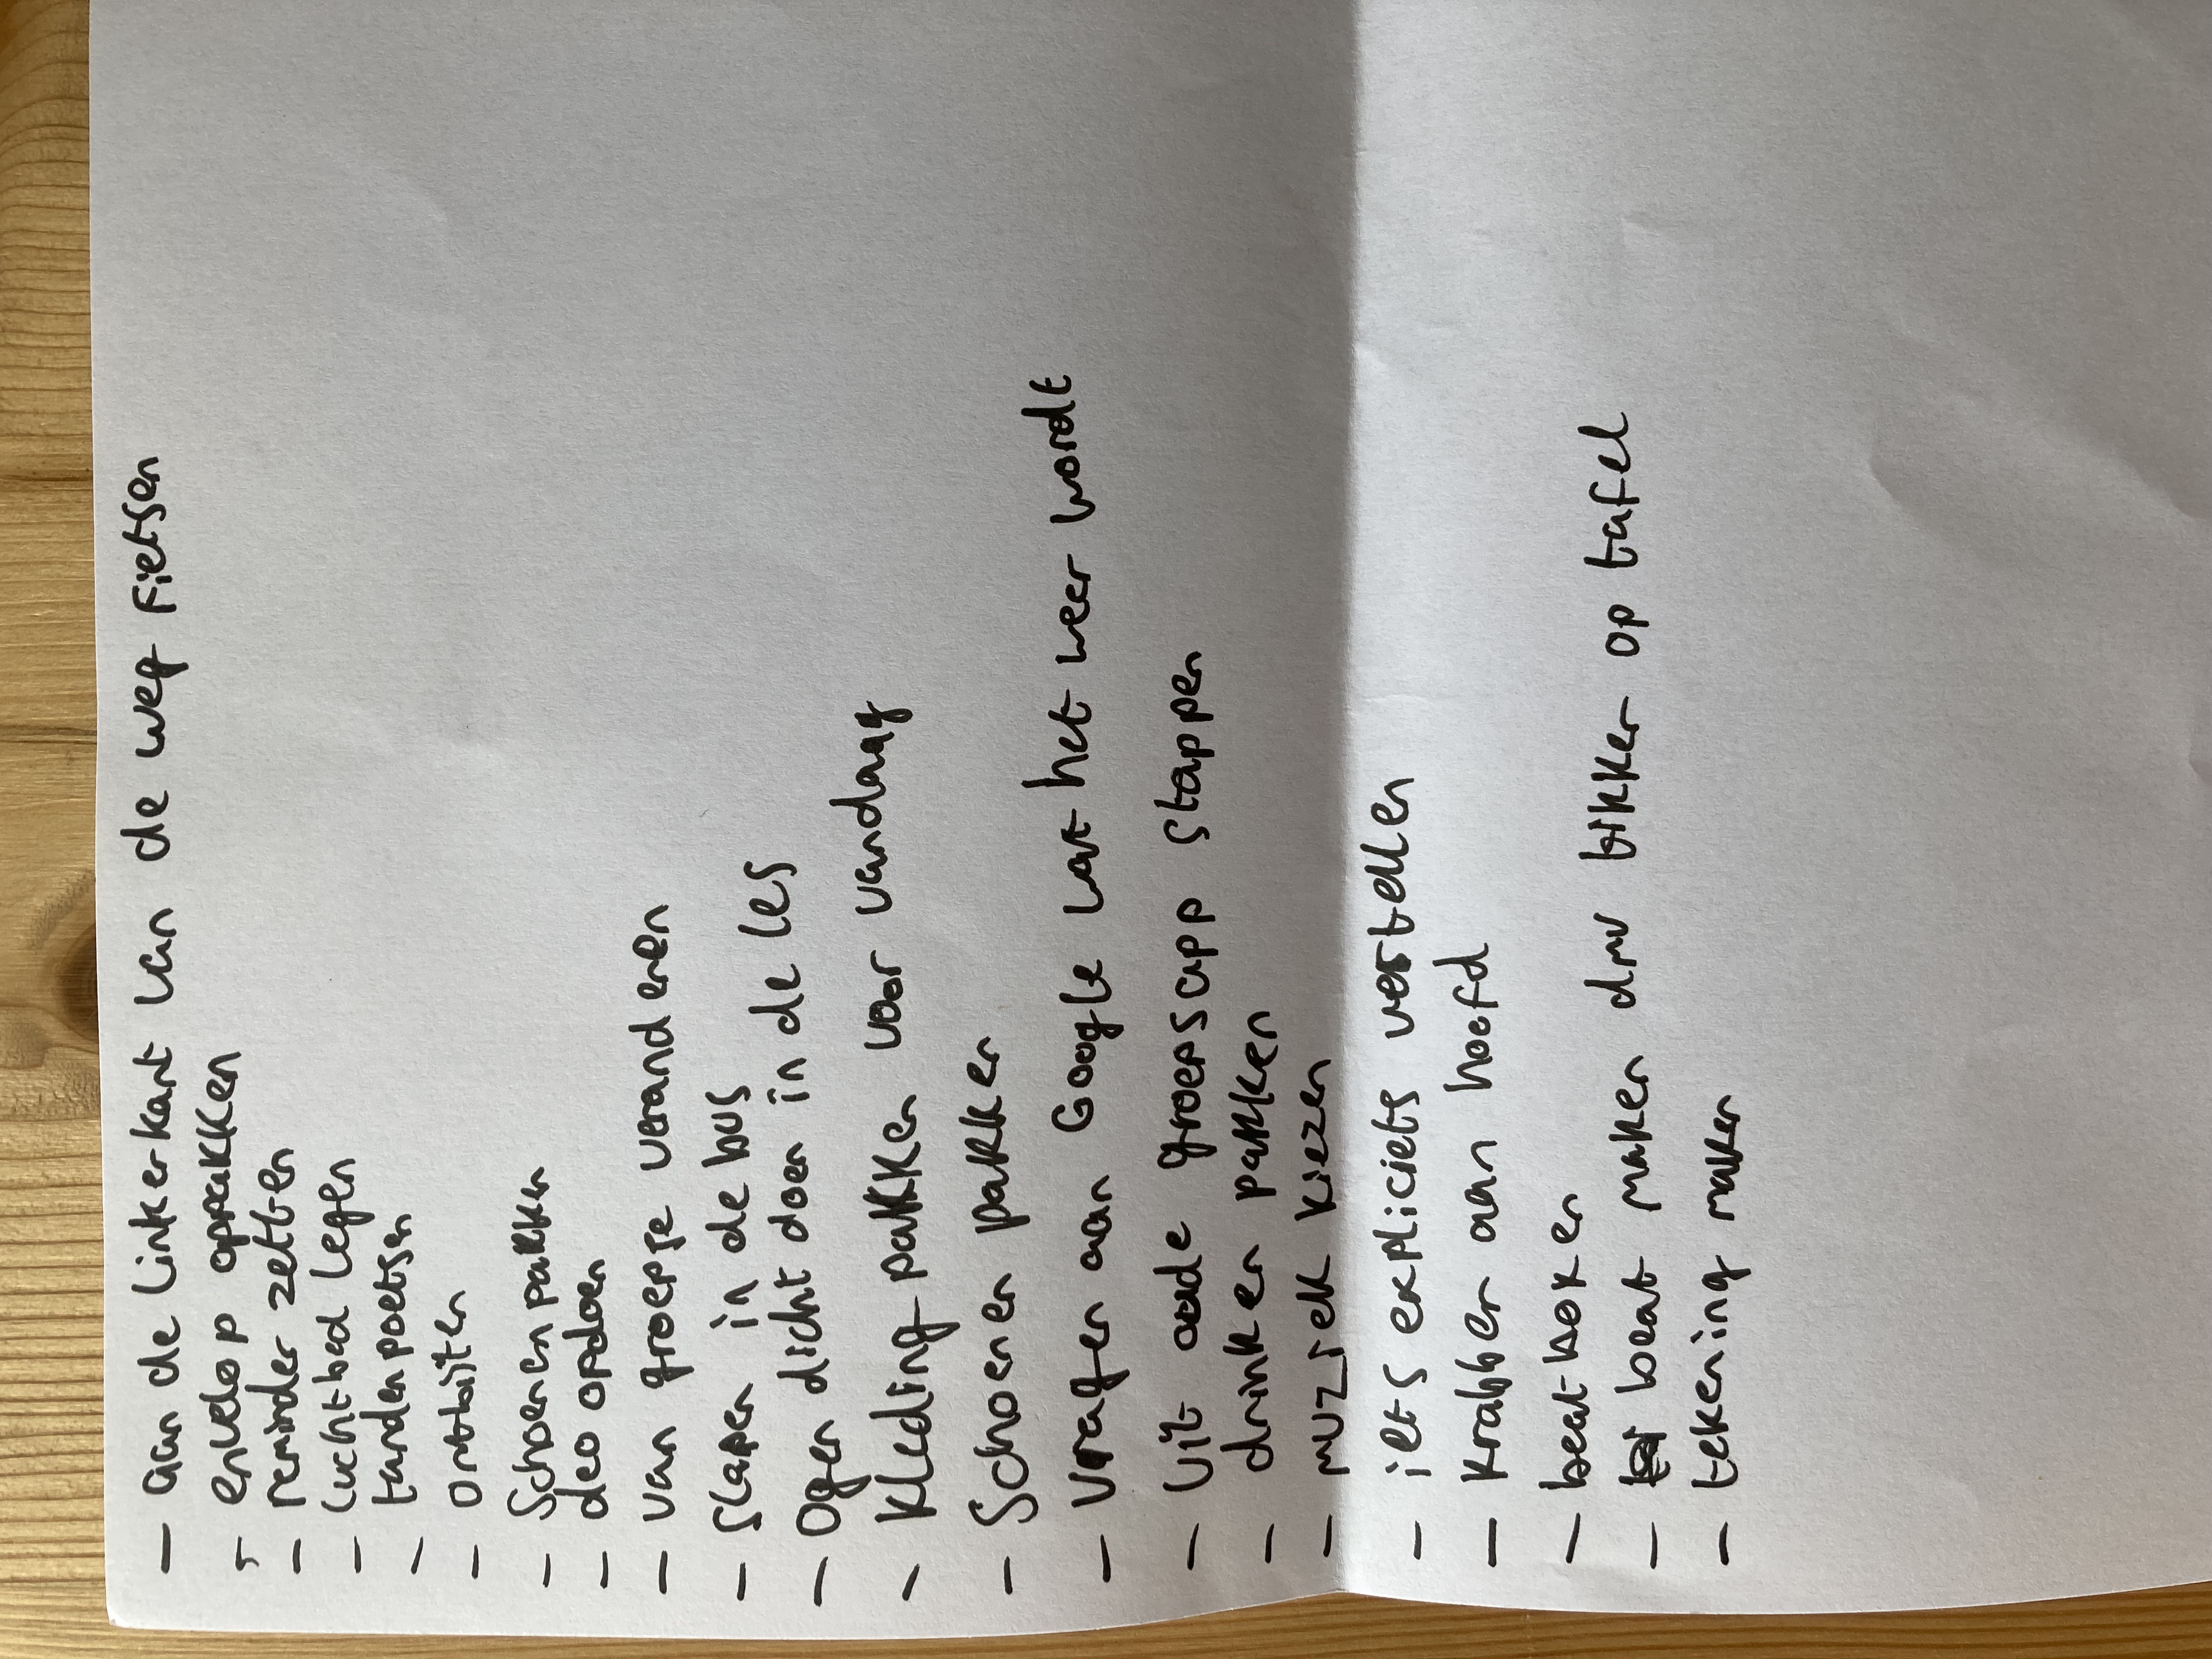 - aan de linkerkant van de weg fietsen
- envelop oppakken
- reminder zetten
- luchtbed legen
- tandenpoetsen
- ontbijten
- Schoenen pakken
- deo opdoen
- van groepje veranderen
- slapen in de bus
- Ogen dicht doen in de les
- Kleding pakken voor vandaag
- Schoenen pakken
- Vragen aan Google wat het weer wordt
- Uit oude groepsapp stappen
- drinken pakken
- muziek kiezen
- iets expliciets vertellen
- Krabben aan hoofd
- beatboxen
- beat maken dmv tikken op tafel
- tekening maken